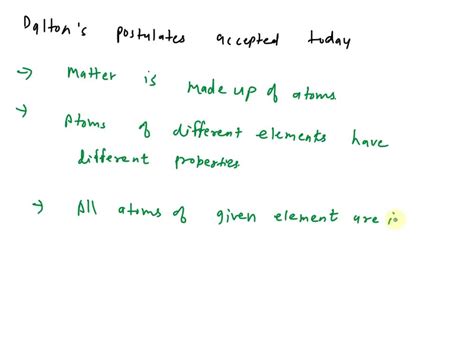 Dalton's postulates accepted today
→ Matter is made up of atoms
→ Atoms of different elements have
different properties
→ All atoms of given element are i